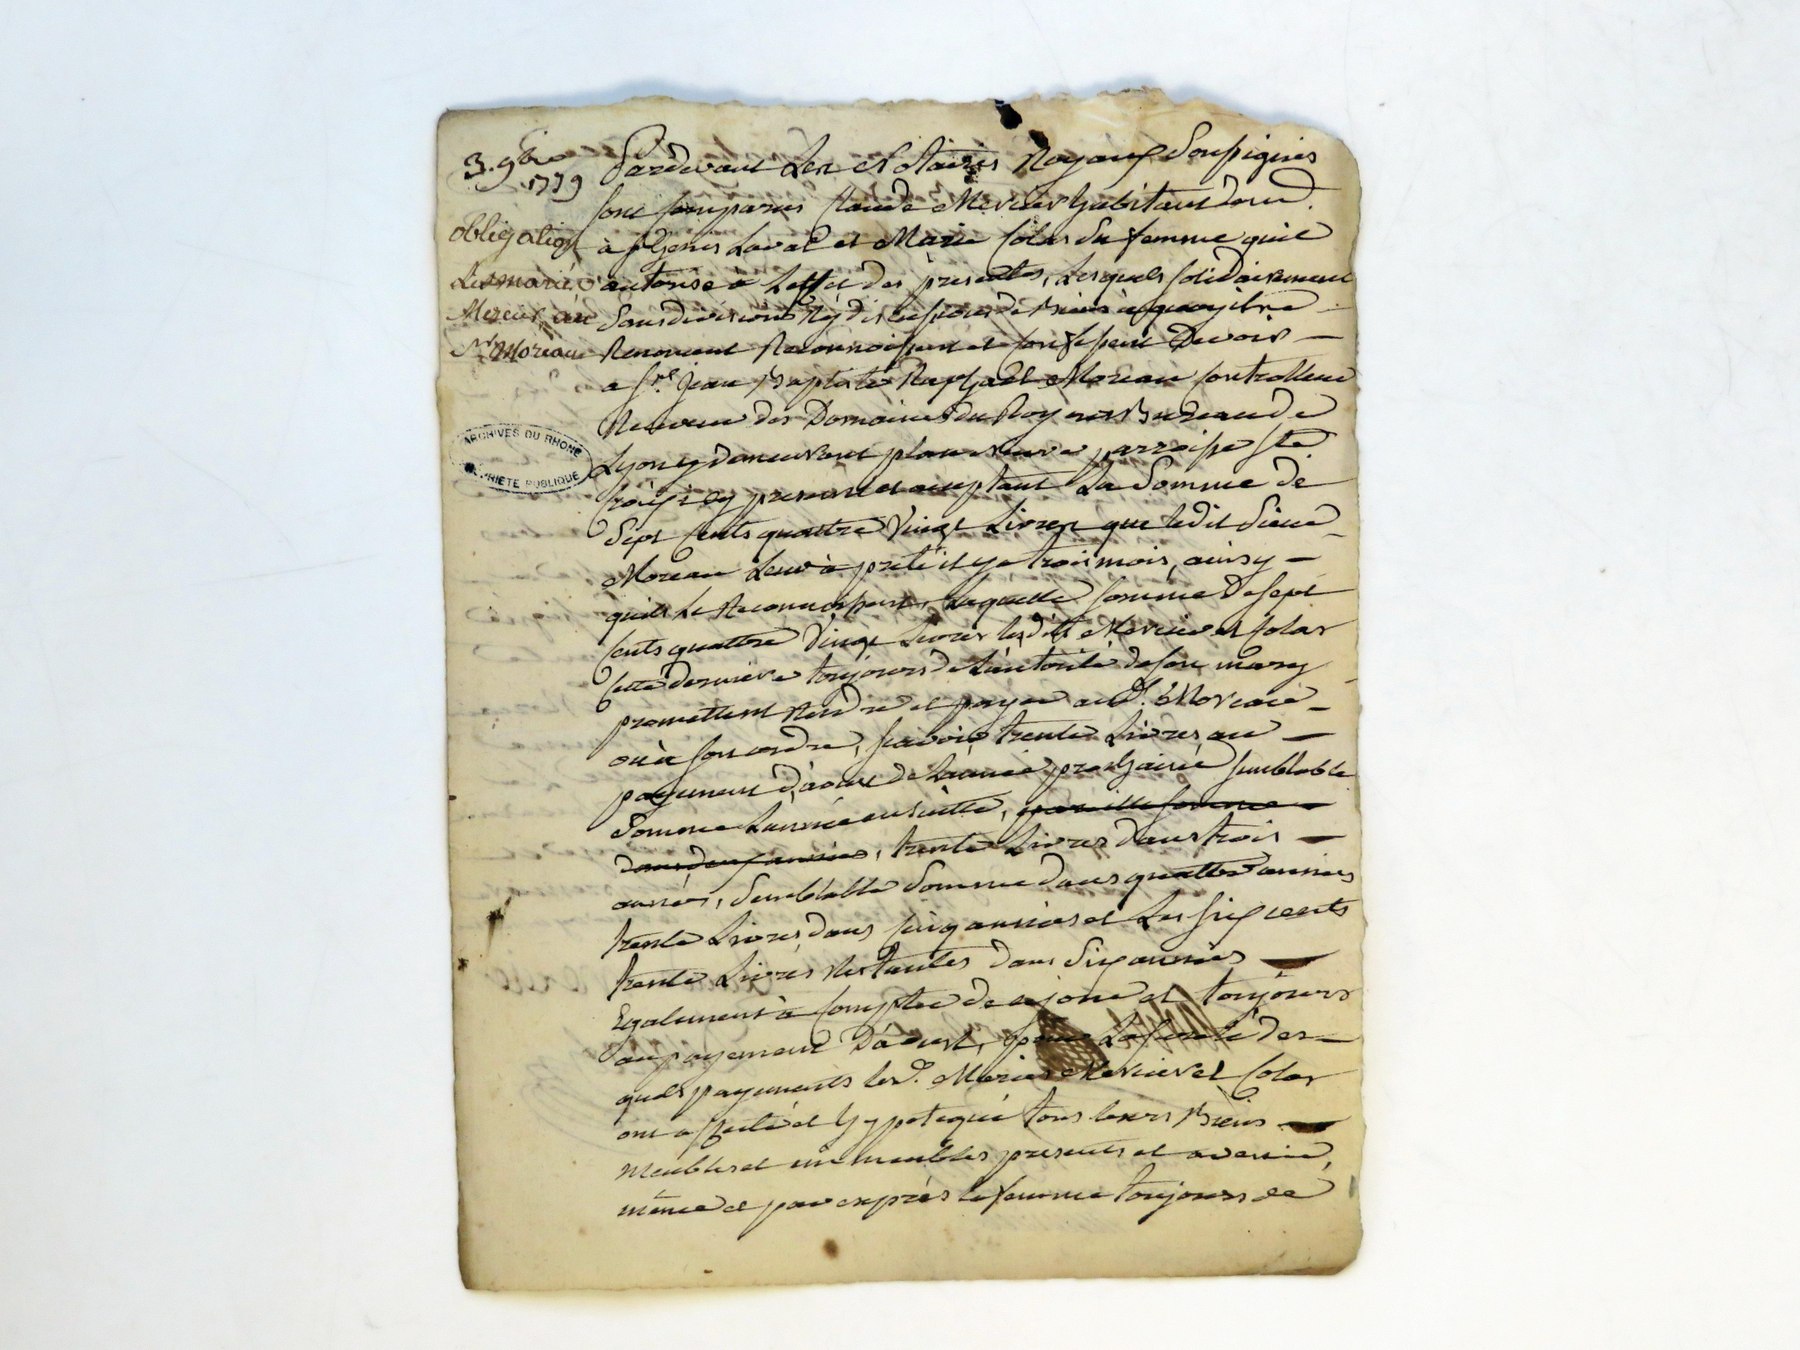 3. 9bre
1779
obligation
Les mariés
Mercier au
Sr. Moreau
ARCHIVES DU RHONE
PROPRIETE PUBLIQUE
Pardevant Les Notaires Royaux Soussignés
sont comparus Claude Mercier habitant
à St Genis Laval et Marie Colas sa femme quil
autorise à Leffet des presentes, Lesquels solidairement
Sans division ny discussion de biens à quoy ils
Renoncent Reconnoissent et confessent Devoir
a Sr. Jean Baptiste Raphael Moreau Controlleur
Receveur des Domaines du Roy au Bureau de
Lyon y demeurant place neuve, parroisse Ste
Croix icy present et acceptant La Somme de
Sept Cents quattre Vingt Livres que ledit Sieur
Moreau Leur à preté il y a trois mois, ainsy
quils Le Reconnoissent, Laquelle somme de sept
cents quattre Vingt Livres lesdits Mercier et Colas
cette derniere toujours de L'autorité de son mary
promettent Rendre et payer au d. Sr. Moreau
ou à son ordre, scavoir trente Livres au
payement d'aout de L'année prochaine semblable
Somme L'année ensuitte, pareille somme
dans deux années, trente Livres dans trois
années, Semblable Somme dans quattre années
trente Livres dans cinq années et Les six cents
trente Livres Restantes dans Six années
Egalement à Compter de ce jour et toujours
au payement D'aoust, pour La sureté des
quels payements les d. Mariés Mercier et Colas
ont affecté et hypotequé tous leurs Biens
Meubles et immeubles presents et avenir,
même et par exprès la femme toujours de